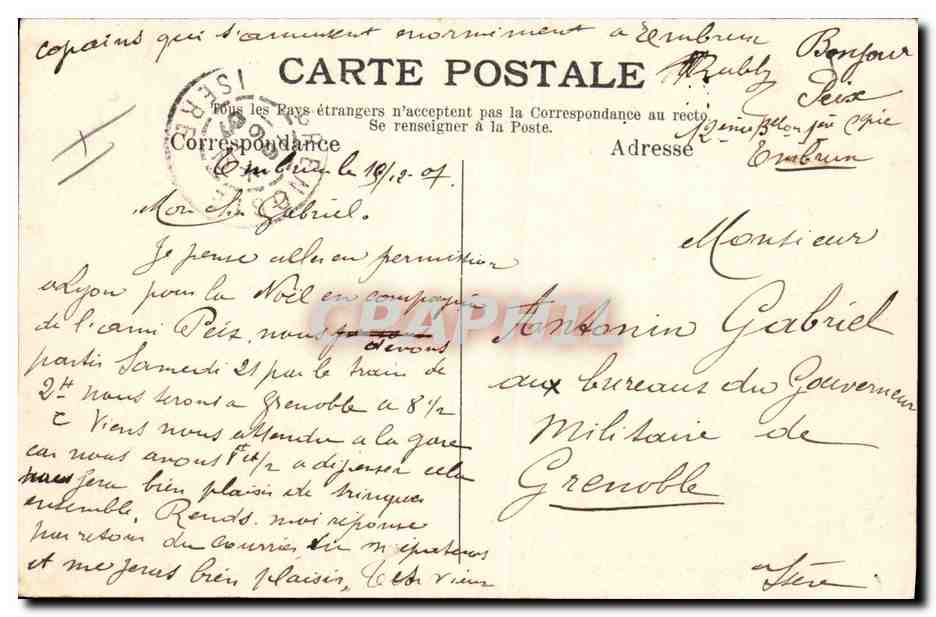 copains qui s'amusent enormiment a Embrun
Bonjour
Peix
CARTE POSTALE
Tous les Pays étrangers n'acceptent pas la Correspondance au recto.
Se renseigner à la Poste.
Correspondance
Adresse
Embrun
Embrun le 19/12-07
ISERE
Mon Cher Gabriel.
Je pense aller en permission
a Lyon pour la Noël en compagnie
de l'ami Peix. nous
devons
partir Samedi 21 par le train de
2H nous serons a Grenoble a 8 1/2
Viens nous attendre a la gare
car nous avons 1/2 a dépenser cela
fera bien plaisir de trinquer
ensemble. Rends-moi réponse
par retour du courrier
et me feras bien plaisir, vieux
Monsieur
Antonin Gabriel
aux bureaux du Gouverneur
Militaire de
Grenoble
Isère
CPAPHIL